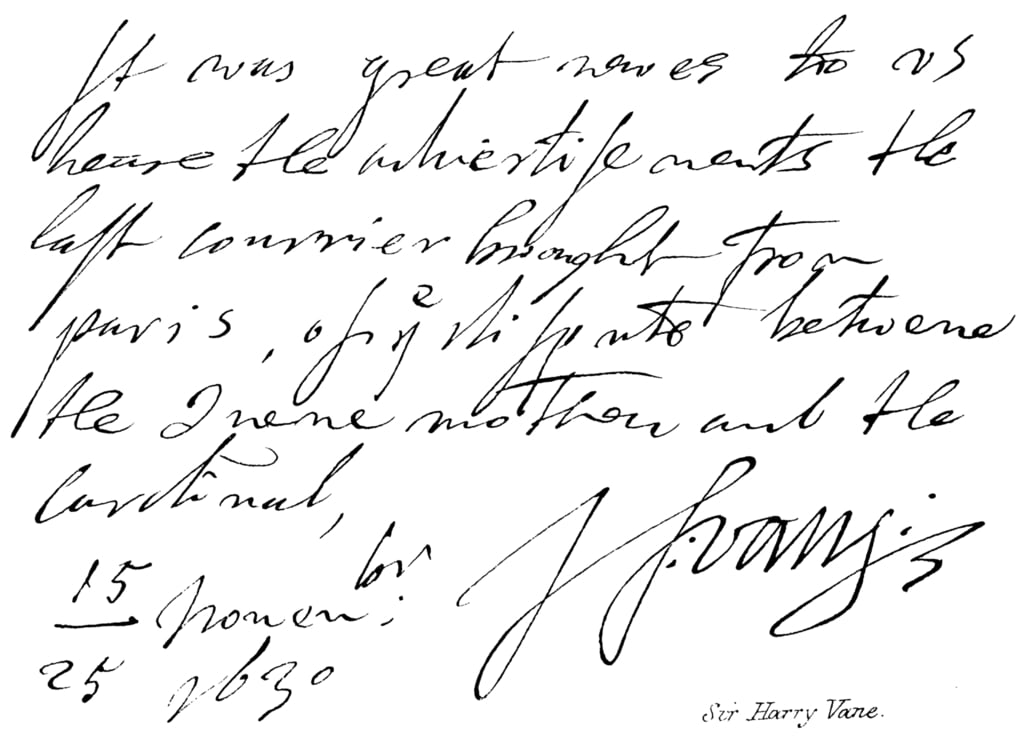 It was great newes to vs
heare the advertisements the
last courrier brought from
paris, of yᵉ disputs betweene
the Queene mother and the
Cardinal,
15 Novemᵇᵉʳ:
25 1630
Sir Harry Vane.